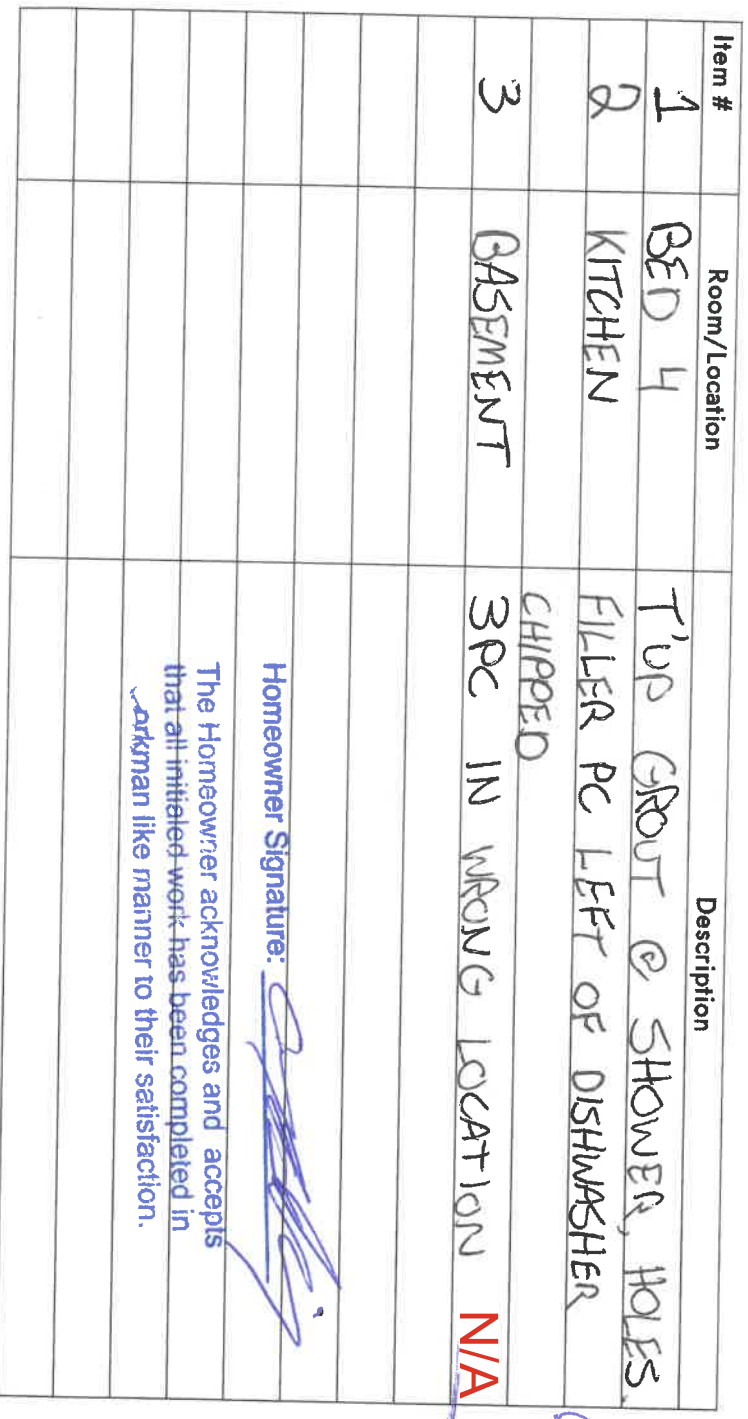 Item # Room/Location Description
1 BED 4 T'UP GROUT @ SHOWER, HOLES.
2 KITCHEN FILLER PC LEFT OF DISHWASHER
CHIPPED
3 BASEMENT 3PC IN WRONG LOCATION N/A
Homeowner Signature:
The Homeowner acknowledges and accepts
that all initialed work has been completed in
orkman like manner to their satisfaction.